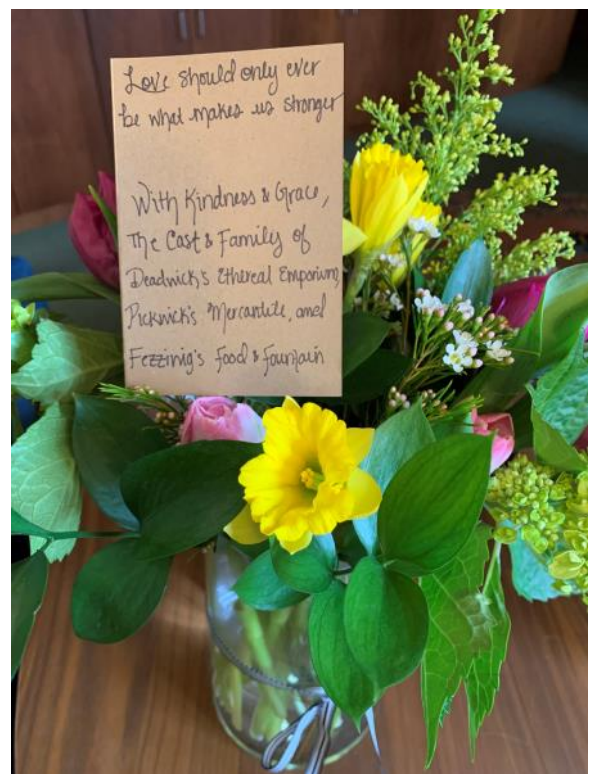 Love should only ever
be what makes us stronger
With Kindness & Grace,
The Cast & Family of
Deadwick's Ethereal Emporium,
Pickwick's Mercantile, and
Fezziwig's Food & Fountain